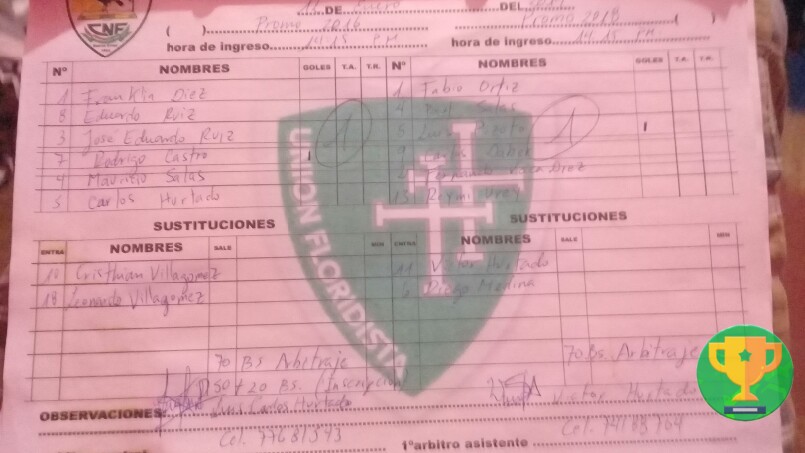 DE DEL
CNF
( ) Promo 2016 Promo 2018 ( )
hora de ingreso 14:15 PM hora de ingreso 14:15 PM
Nº NOMBRES GOLES T.A. T.R. Nº NOMBRES GOLES T.A. T.R.
1 Franklin Diez 1 Fabio Ortiz
8 Eduardo Ruiz 4 Salas
3 José Eduardo Ruiz 1 5 1
7 Rodrigo Castro 1 9
4 Mauricio Salas Fernando Vaca Diez
5 Carlos Hurtado 13
UNION FLORIDISTA
SUSTITUCIONES SUSTITUCIONES
ENTRA NOMBRES SALE MIN ENTRA NOMBRES SALE MIN
10 Cristhian Villagomez 11 Victor Hurtado
18 Leonardo Villagomez 6 Diego Medina
70 Bs Arbitraje 70 Bs. Arbitraje
50 + 20 Bs. (Inscripcion)
OBSERVACIONES: Luis Carlos Hurtado Victor Hurtado
Cel. 77681543 Cel. 74188764
1º arbitro asistente